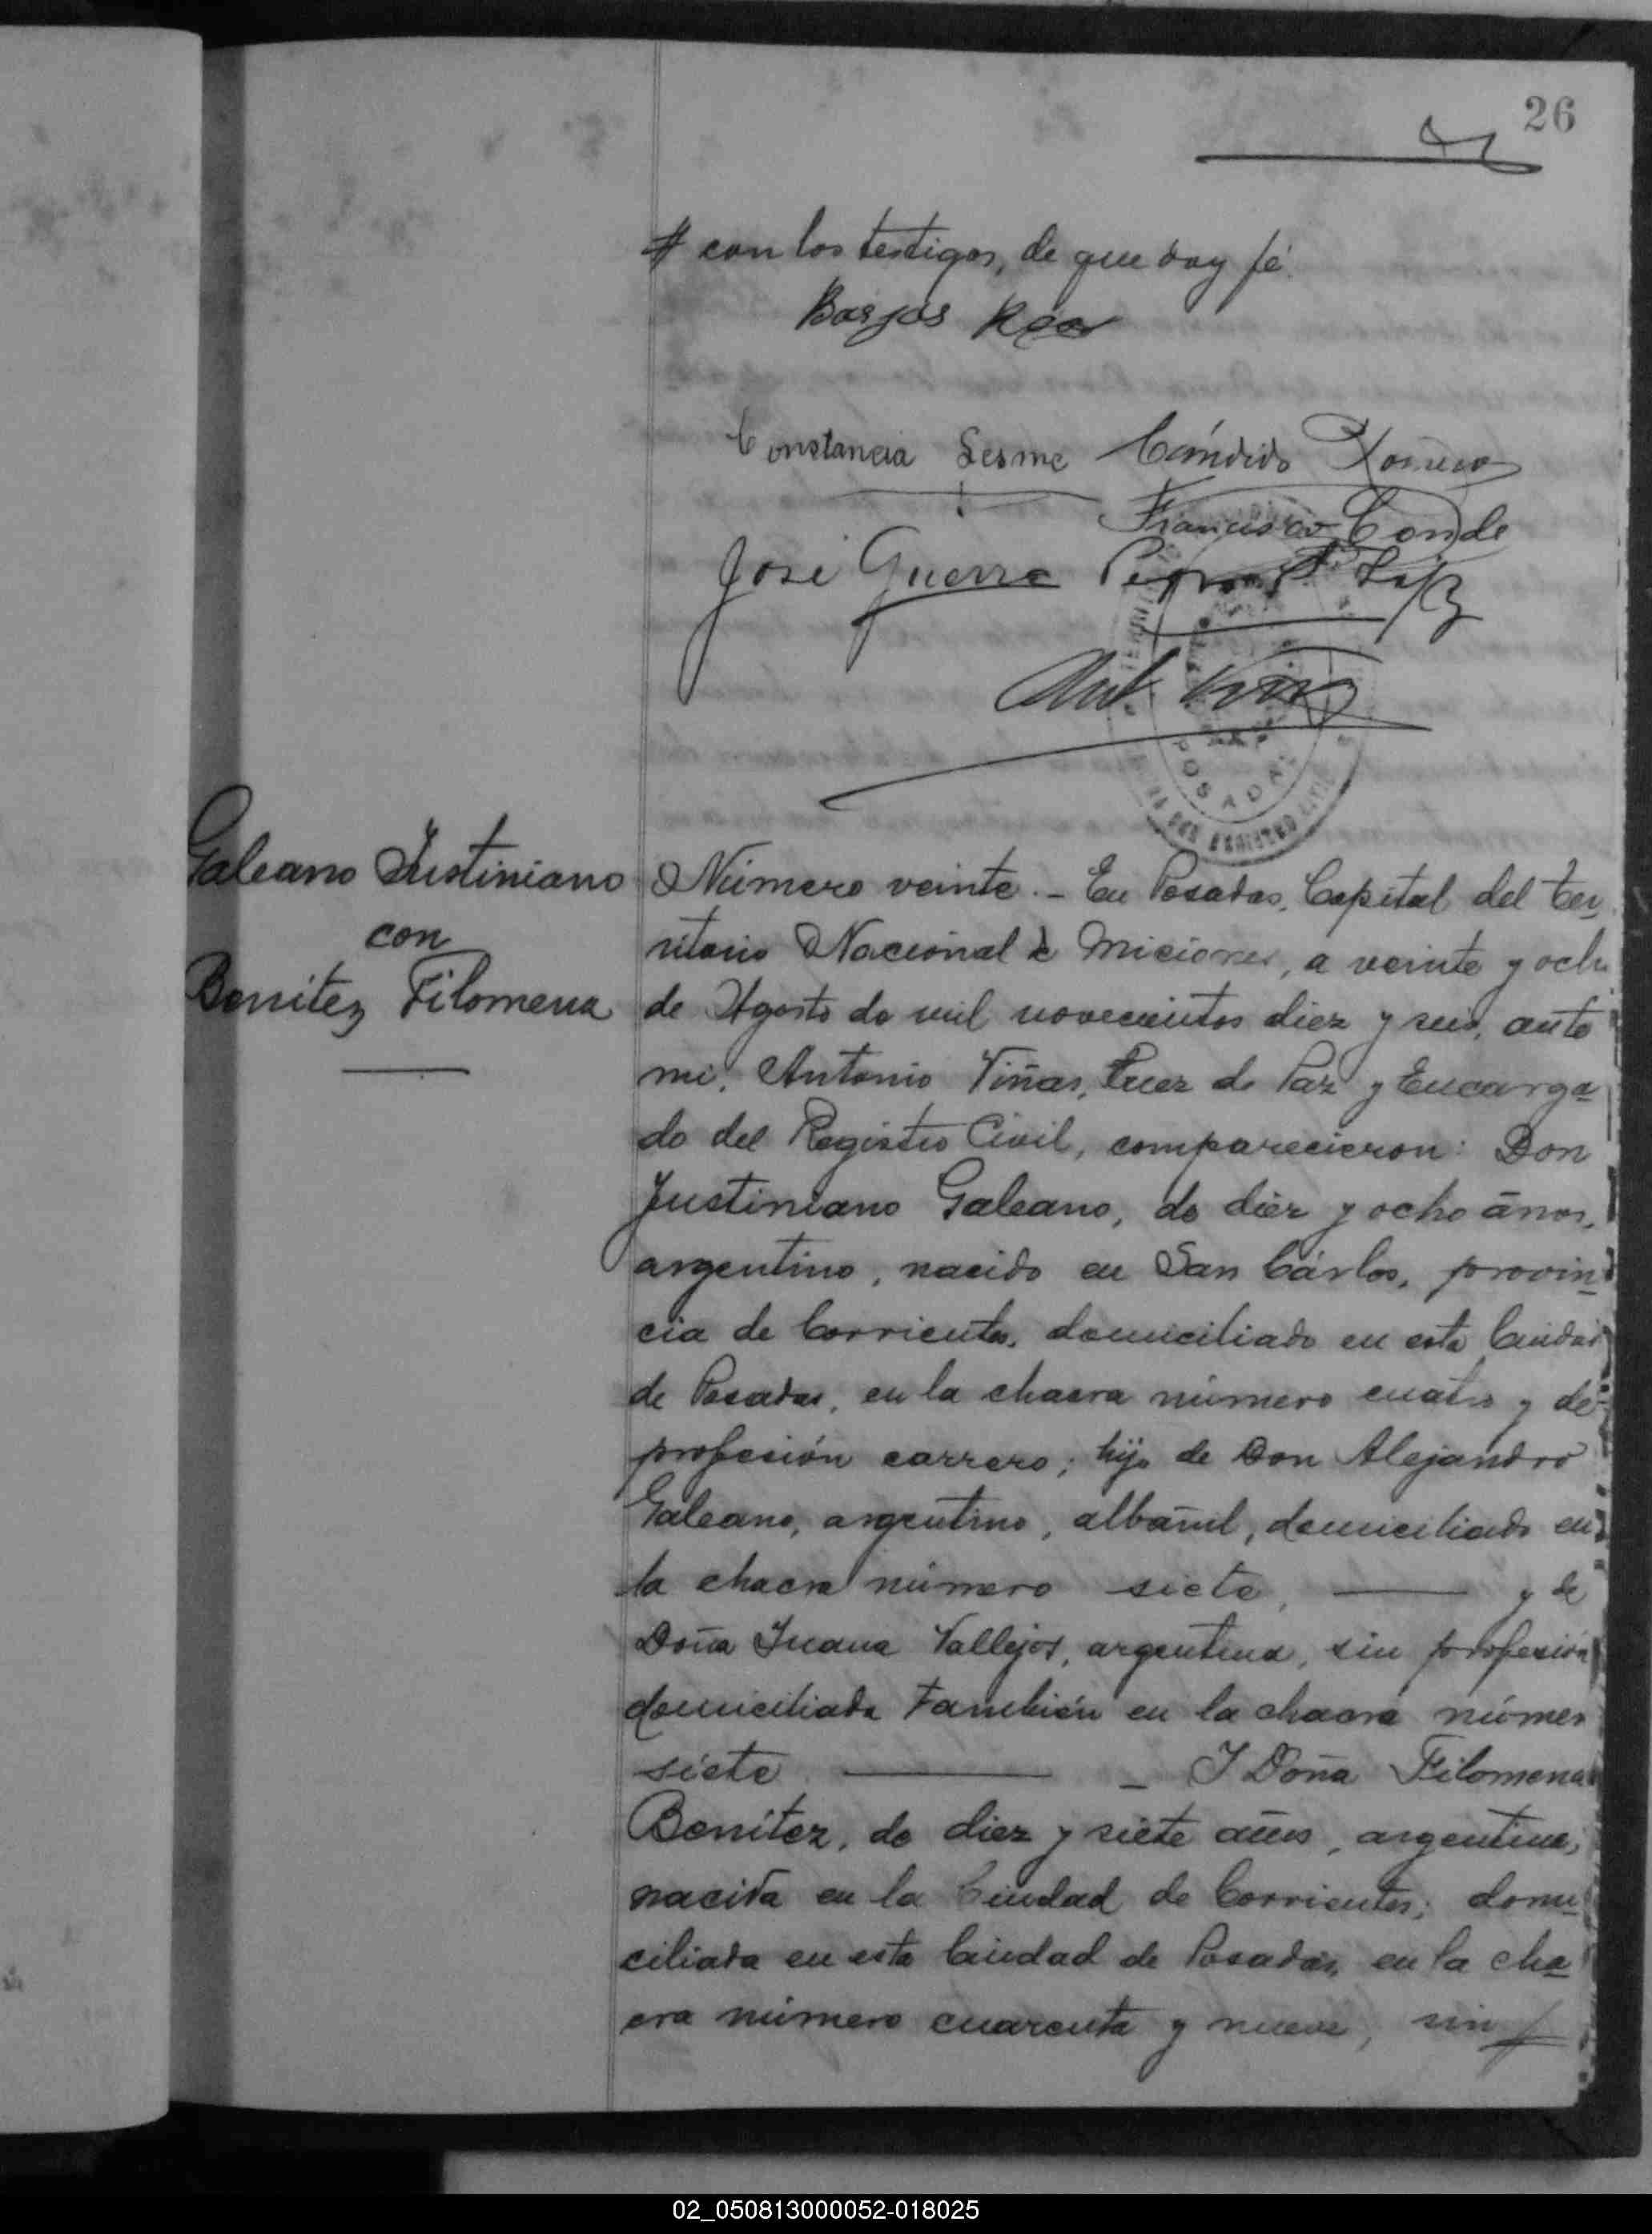 26
# con los testigos, de que doy fé.
Constancia Lesme Cándido Romero
Francisco Conde
José Guerra
POSADAS
DEL REGISTRO CIVIL
Galeano Justiniano
con
Benitez Filomena
Número veinte.- En Posadas, Capital del Ter
ritorio Nacional de Miciones, a veinte y ocho
de Agosto de mil novecientos diez y seis, ante
mi, Antonio Viñas, Juez de Paz y Encarga
do del Registro Civil, comparecieron: Don
Justiniano Galeano, de diez y ocho años,
argentino, nacido en San Cárlos, provin
cia de Corrientes, domiciliado en esta Ciudad
de Posadas, en la chacra número cuatro y de
profesión carrero; hijo de Don Alejandro
Galeano, argentino, albañil, domiciliado en
la chacra número siete, y de
Doña Juana Vallejos, argentina, sin profesión
domiciliada también en la chacra número
siete — Y Doña Filomena
Benítez, de diez y siete años, argentina,
nacida en la Ciudad de Corrientes; domi
ciliada en esta Ciudad de Posadas, en la cha
cra número cuarenta y nueve, sin
02_050813000052-018025